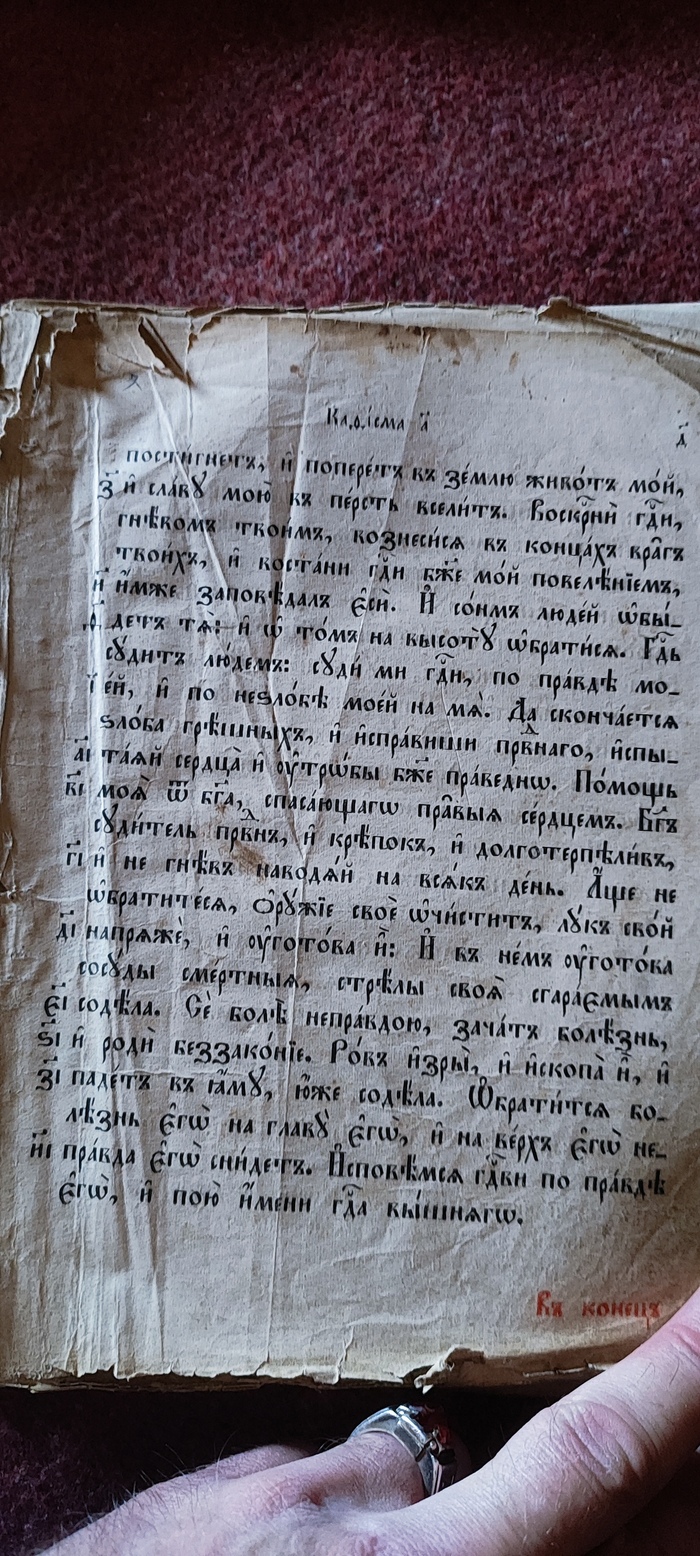 Каѳі́сма а҃
д҃
пости́гнетъ, и҆ попере́тъ въ зе́млю живо́тъ мо́й,
з҃ и҆ сла́вꙋ мою̀ въ пе́рсть всели́тъ. Воскрⷭ҇нѝ гдⷭ҇и,
гнѣ́вомъ твои́мъ, вознеси́сѧ въ конца́хъ вра̑гъ
твои́хъ, и҆ воста́ни гдⷭ҇и бж҃е мо́й повелѣ́нїемъ,
и҃ и҆́мже заповѣ́далъ є҆сѝ. И҆ со́нмъ люде́й ѡ҆бы́_
ѳ҃ детъ тѧ̀: и҆ ѡ҆ то́мъ на высотꙋ̀ ѡ҆брати́сѧ. Гдⷭ҇ь
сꙋ́дитъ лю́демъ: сꙋди́ ми гдⷭ҇и, по пра́вдѣ мо_
і҃ е́й, и҆ по неѕло́бѣ мое́й на мѧ̀. Да сконча́етсѧ
ѕло́ба грѣ́шныхъ, и҆ и҆спра́виши првⷣнаго, и҆спы_
а҃і та́ѧй сердца̀ и҆ ᲂу҆трѡ́бы бж҃е пра́веднѡ. По́мощь
в҃і моѧ̀ ѿ бг҃а, спаса́ющагѡ пра̑выѧ се́рдцемъ. Бг҃ъ
сꙋди́тель првⷣнъ, и҆ крѣ́покъ, и҆ долготерпѣли́въ,
г҃і и҆ не гнѣ́въ наводѧ́й на всѧ́къ де́нь. А҆́ще не
ѡ҆брати́тесѧ, ѻ҆рꙋ́жїе своѐ ѡ҆чи́ститъ, лꙋ́къ сво́й
д҃і напрѧжѐ, и҆ ᲂу҆гото́ва и҆̀: И҆ въ не́мъ ᲂу҆гото́ва
сосꙋ́ды сме́ртныѧ, стрѣ́лы своѧ̀ сгара́ємымъ
є҃і содѣ́ла. Сѐ болѣ̀ непра́вдою, зача́тъ болѣ́знь,
ѕ҃і и҆ родѝ беззако́нїе. Ро́въ и҆зры̀, и҆ и҆скопа̀ и҆̀, и҆
з҃і паде́тъ въ ꙗ҆́мꙋ, ю҆́же содѣ́ла. Ѡ҆брати́тсѧ бо_
лѣ́знь є҆гѡ̀ на главꙋ̀ є҆гѡ̀, и҆ на ве́рхъ є҆гѡ̀ не_
и҃і пра́вда є҆гѡ̀ сни́детъ. И҆сповѣ́мсѧ гдⷭ҇ви по пра́вдѣ
є҆гѡ̀, и҆ пою̀ и҆́мени гдⷭ҇а вы́шнѧгѡ.
Въ коне́цъ